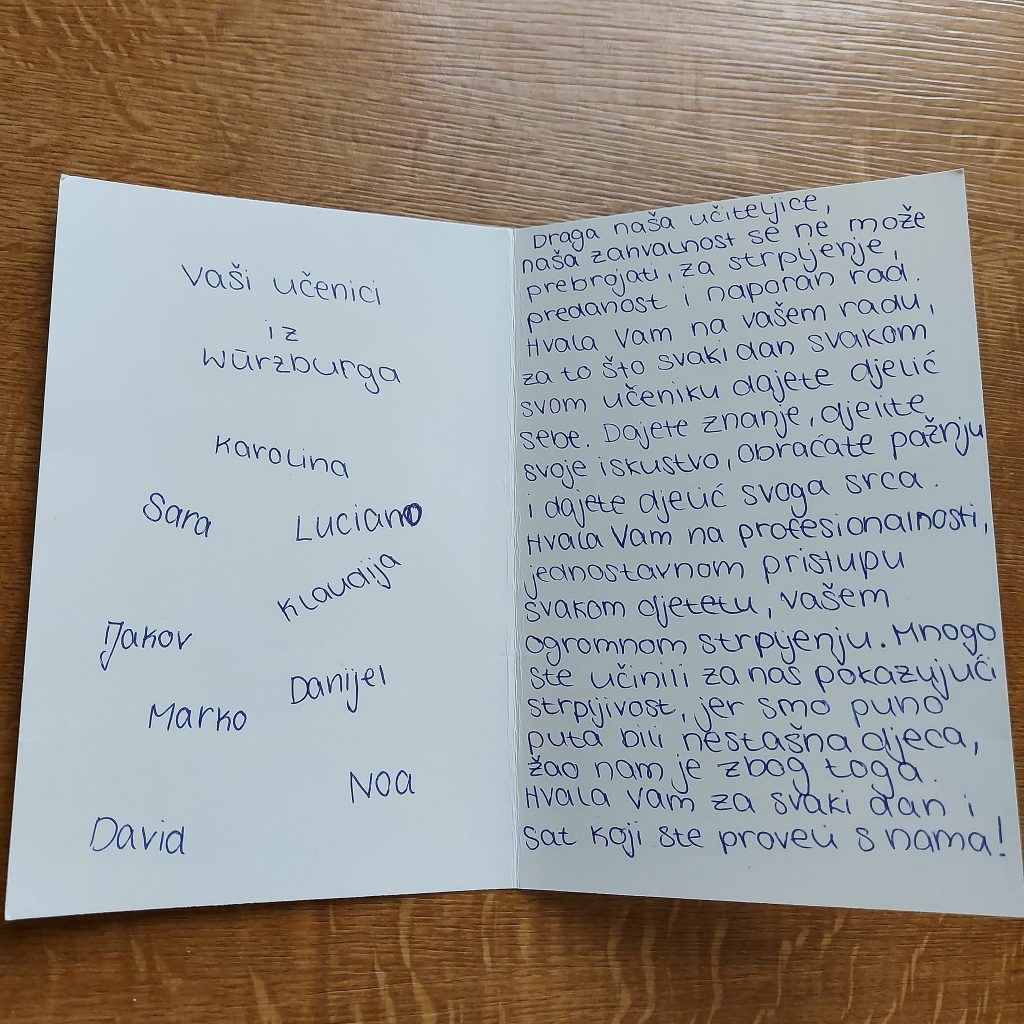 Vaši učenici
iz
Würzburga
Karolina
Sara
Luciano
Klaudija
Jakov
Danijel
Marko
Noa
David
Draga naša učiteljice,
naša zahvalnost se ne može
prebrojati, za strpljenje,
predanost i naporan rad.
Hvala Vam na vašem radu,
za to što svaki dan svakom
svom učeniku dajete djelić
sebe. Dajete znanje, djelite
svoje iskustvo, obraćate pažnju
i dajete djelić svoga srca.
Hvala Vam na profesionalnosti,
jednostavnom pristupu
svakom djetetu, vašem
ogromnom strpljenju. Mnogo
ste učinili za nas pokazujući
strpljivost, jer smo puno
puta bili nestašna djeca,
žao nam je zbog toga.
Hvala Vam za svaki dan i
sat koji ste proveli s nama!